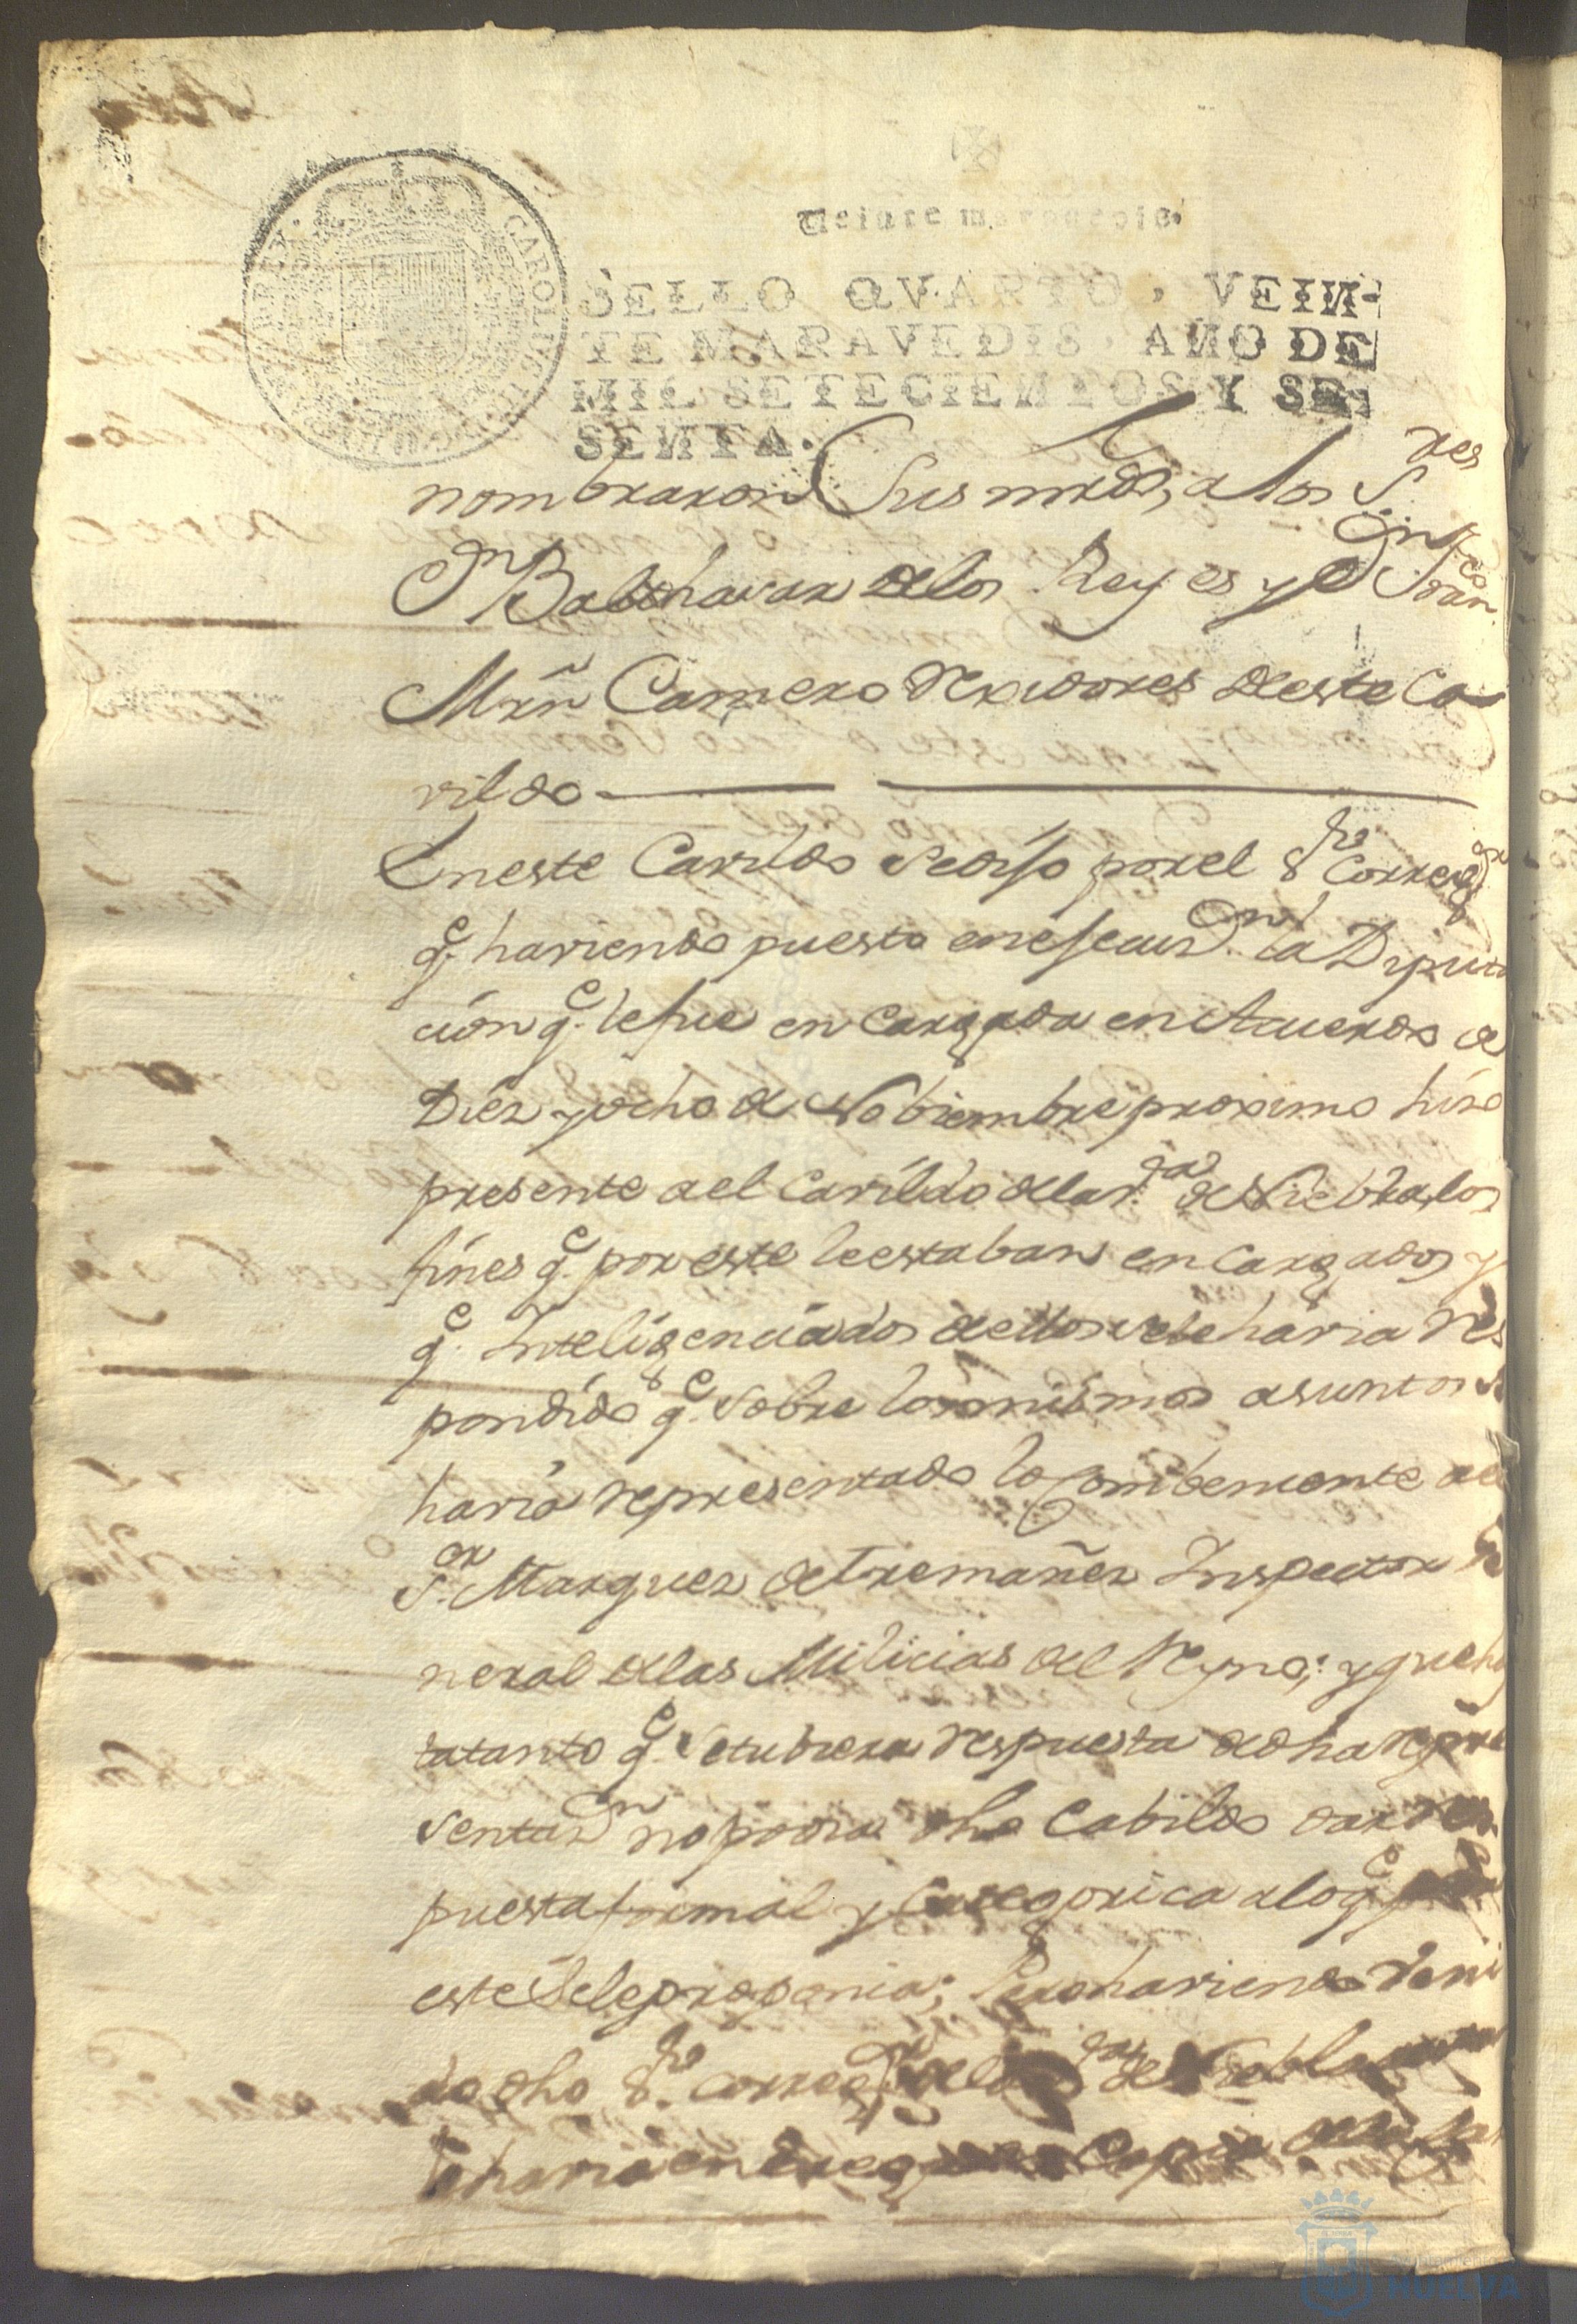 Veinte maravedis.
SELLO QVARTO, VEIN-
TE MARAVEDIS, AÑO DE
MIL SETECIENTOS Y SE-
SENTA.
nombraron Sus mrds, a los S.res
Dn Balthasar de los Reyes y Dn Fran.co
Mrn Camero rexidores de este Ca
vildo
En este Cavildo se dijo por el Sr. Correg.or
q.e haviendo puesto en ejecuz.on la Diputa
cion q.e le fue en cargada en Acuerdo de
Diez y ocho de Nobiembre proximo hizo
presente a el Cavildo de la v.a de Niebla, los
fines q.e por este le estaban en cargados y
q.e Inteligenciados de ellos se le havia res
pondido q.e sobre los mismos asuntos se
havia representado lo combeniente a el
S.or Marques de Tremañez Inspector Ge
neral de las Milicias del Reyno; y que has
ta tanto q.e se tubiera respuesta de dha repre
sentaz.on no podia dho Cabildo dar res
puesta formal y Categorica a lo q.e por
este se le proponia; Pero haviendo Veni
do dho Sr. Correg.or de la v.a de Niebla
havia entreg Copia de la
CAROLUS
HUELVA